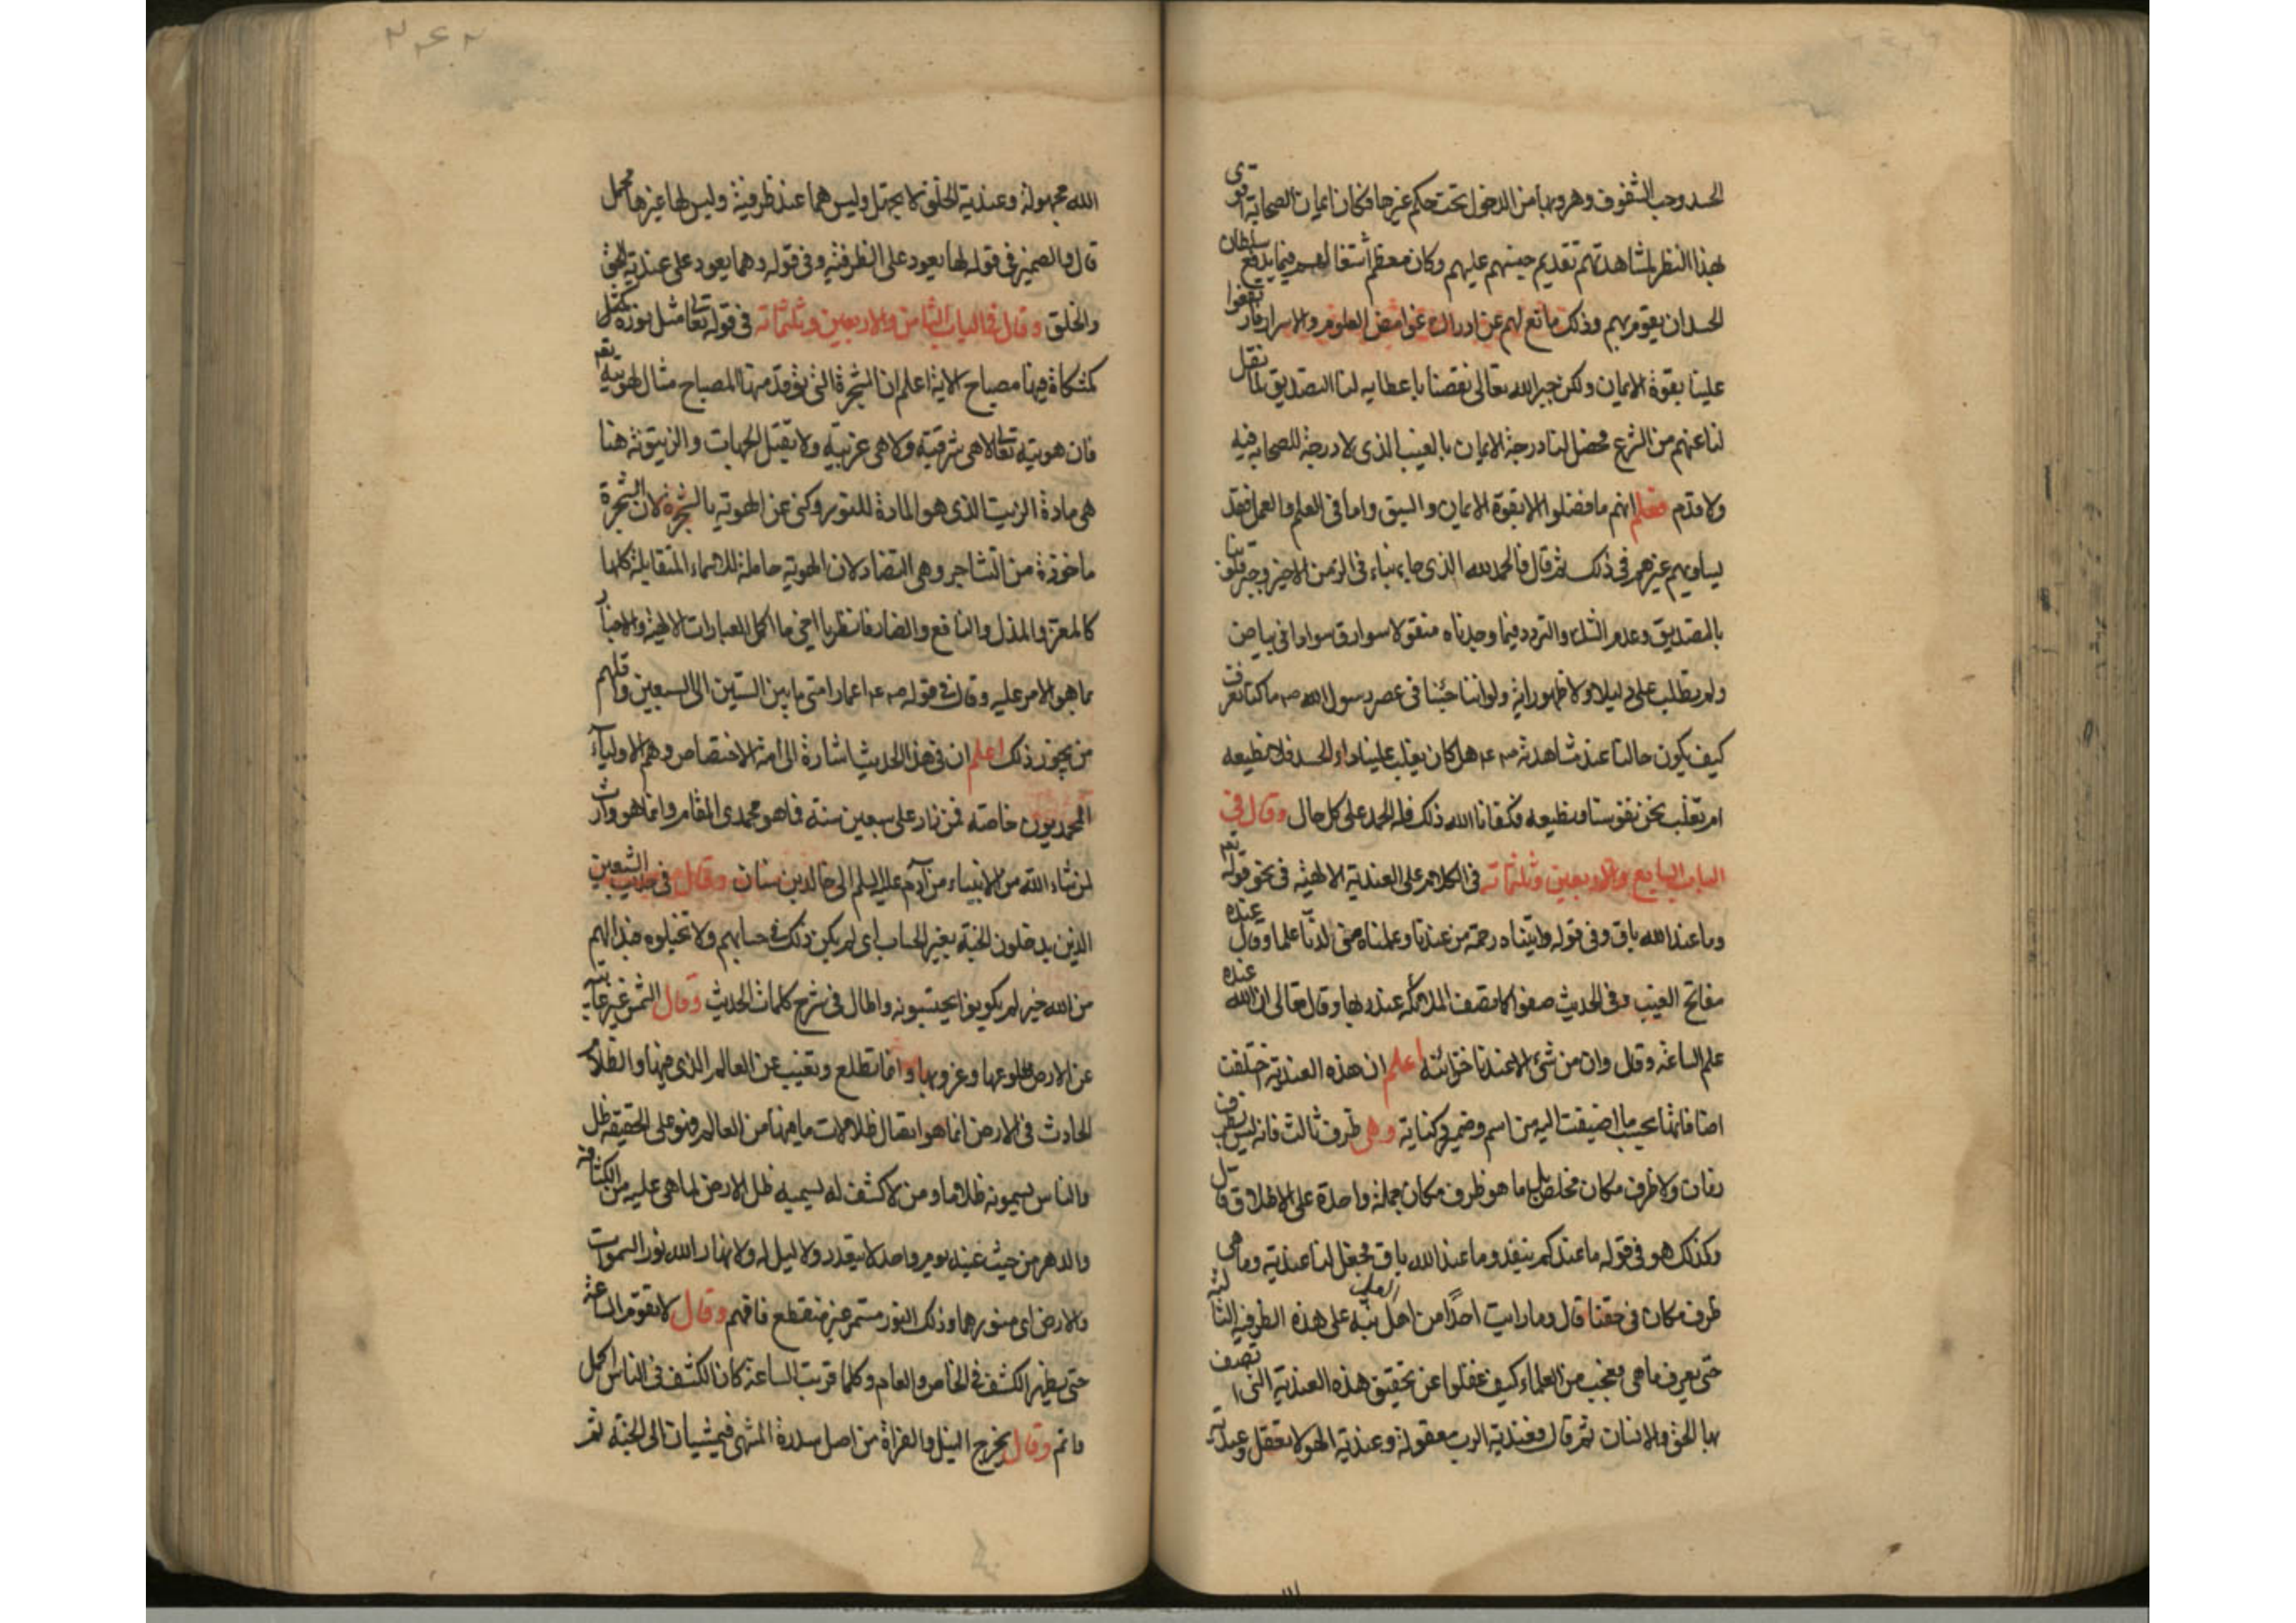 الحسد وحب الشفوف وهروبها من الدخول تحت حكم غيرها فكان ايمان الصحابة اقوى
بهذا النظر لمشاهدتهم تقديم جنسهم عليهم وكان معظم اشتغالهم فيما يدفع سلطان
الحسد ان يقوم بهم وذلك مانع لهم عن ادراك غوامض العلوم والاسرار فارتفعوا
علينا بقوة الايمان ولكن جبر الله تعالى نقصنا باعطايه لنا التصديق لما نقل
لنا عنهم من الشرع فحصل لنا درجة الايمان بالغيب الذى لا درجة للصحابه فيه
ولا قدم فعلم انهم ما فضلوا الا بقوة الايمان والسبق واما فى العلم والعمل فقد
يساويهم غيرهم فى ذلك ثم قال فالحمد لله الذى جاء بنا فى الزمن الاخير وجبر قلوبنا
بالتصديق وعدم الشك والتردد فيما وجدناه منقولا سوادا فى بياض
ولم يطلب على دليلا ولا ظهور اية ولو اننا جئنا فى عصر رسول الله صـ م ما كنا نعرف
كيف يكون حالنا عند مشاهدته صـ عـ م هل كان يغلب علينا داء الحسد فلا نطيعه
ام نغلب نحن نفوسنا فنطيعه فكفانا الله ذلك فله الحمد على كل حال وقال فى
الباب السابع والاربعين وثلثمائة فى الكلام على العندية الالهية فى نحو قوله تعـ
وما عند الله باق وفى قوله واتيناه رحمة من عندنا وعلمناه من لدنا علما وقال عنده
مفاتح الغيب وفى الحديث صفوا كما تصف الملائكه عند ربها وقال تعالى ان الله عنده
علم الساعه وقال وان من شئ الا عندنا خزائنه اعلم ان هذه العندية اختلفت
اضافاتها بحسب ما اضيفت اليه من اسم وضمير وكناية وهى ظرف ثالث فانه ليس بظرف
زمان ولا ظرف مكان مخلص بل ما هو ظرف مكان جملة واحدة على الاطلاق قال
وكذلك هو فى قوله ما عندكم ينفد وما عند الله باق فجعل لنا عندية وما هى
ظرف مكان فى حقنا قال وما رايت احدا من اهل الله نبه على هذه الظرفية الثالثة
حتى يعرف ما هى فعجب من العلماء كيف غفلوا عن تحقيق هذه العندية التى اتصف
بها الحق والانسان ثم قال فعندية الرب معقولة وعندية الهو لا تعقل وعندية
الله مجهولة وعندية الخلق لا تجهل وليس هما عند ظرفية وليس لها غيرها محمل
قال والضمير فى قوله لها يعود على الظرفيه وفى قوله وهما يعود على عندية الحق
والخلق وقال فى الباب الثامن والاربعين وثلثمائة فى قوله تعالى مثل نوره
كمشكاة فيها مصباح الاية اعلم ان الشجرة التى يوقد منها المصباح مثال لهويته تعـ
فان هويته تعالى لا هى شرقية ولا هى غربية ولا تقبل الجهات والزيتونة هنا
هى مادة الزيت الذى هو المادة للنور وكنى عن الهوية بالشجرة لان الشجرة
ماخوذة من التشاجر وهى التضاد لان الهوية حاملة للاسماء المتقابلة كلها
كالمعز والمذل والنافع والضار فانظر يا اخى ما اكمل العبارات الالهية والاخبار
بما هو الامر عليه وقال فى قوله صـ عـ م اعمار امتى ما بين الستين الى السبعين واقلهم
من يجوز ذلك اعلم ان فى هذا الحديث اشارة الى امة الاختصاص وهم الاولياء
المحمديون خاصة فمن زاد على سبعين سنة فما هو محمدى المقام وانما هو وارث
لمن شاء الله من الانبياء من آدم عليه السلم الى خالد بن سنان وقال فى حديث السبعين
الذين يدخلون الجنة بغير الحساب اى لم يكن ذلك فى حسابهم ولا تخيلوه فبدا لهم
من الله خير لم يكونوا يحتسبونه واطال فى شرح كلمات الحديث وقال الشمس غير غايبة
عن الارض طلوعها وغروبها وانما تطلع وتغيب عن العالم الذى فيها والظلام
الحادث فى الارض انما هو اتصال ظلالات ما فيها من العالم فهو على الحقيقة ظل
والناس يسمونه ظلاما ومن لا كشف له يسميه ظل الارض لما هى عليه من الكثافة
والدهر من حيث عينه يوم واحد لا يتعدد ولا ليل له ولا نهار الله نور السموات
والارض اى منورهما وذلك النور مستمر غير منقطع فافهم وقال لا تقوم الساعة
حتى يظهر الكشف فى الخاص والعام وكلما قربت الساعة كان الكشف فى الناس اكمل
واتم وقال يخرج النيل والفراة من اصل سدرة المنتهى فيمشيان الى الجنة ثم